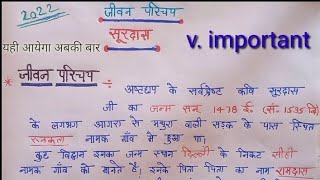 2022
जीवन परिचय
सूरदास
यही आयेगा अबकी बार
v. important
* जीवन परिचय ÷
अष्टछाप के सर्वश्रेष्ठ कवि सूरदास
जी का जन्म सन् 1478 ई० (सं०-1535 वि०)
के लगभग आगरा से मथुरा वाली सड़क के पास स्थित
रुनकता नामक गाँव में हुआ था।
कुछ विद्वान इनका जन्म स्थान दिल्ली के निकट सीही
नामक गाँव को मानते हैं। इनके पिता का नाम रामदास